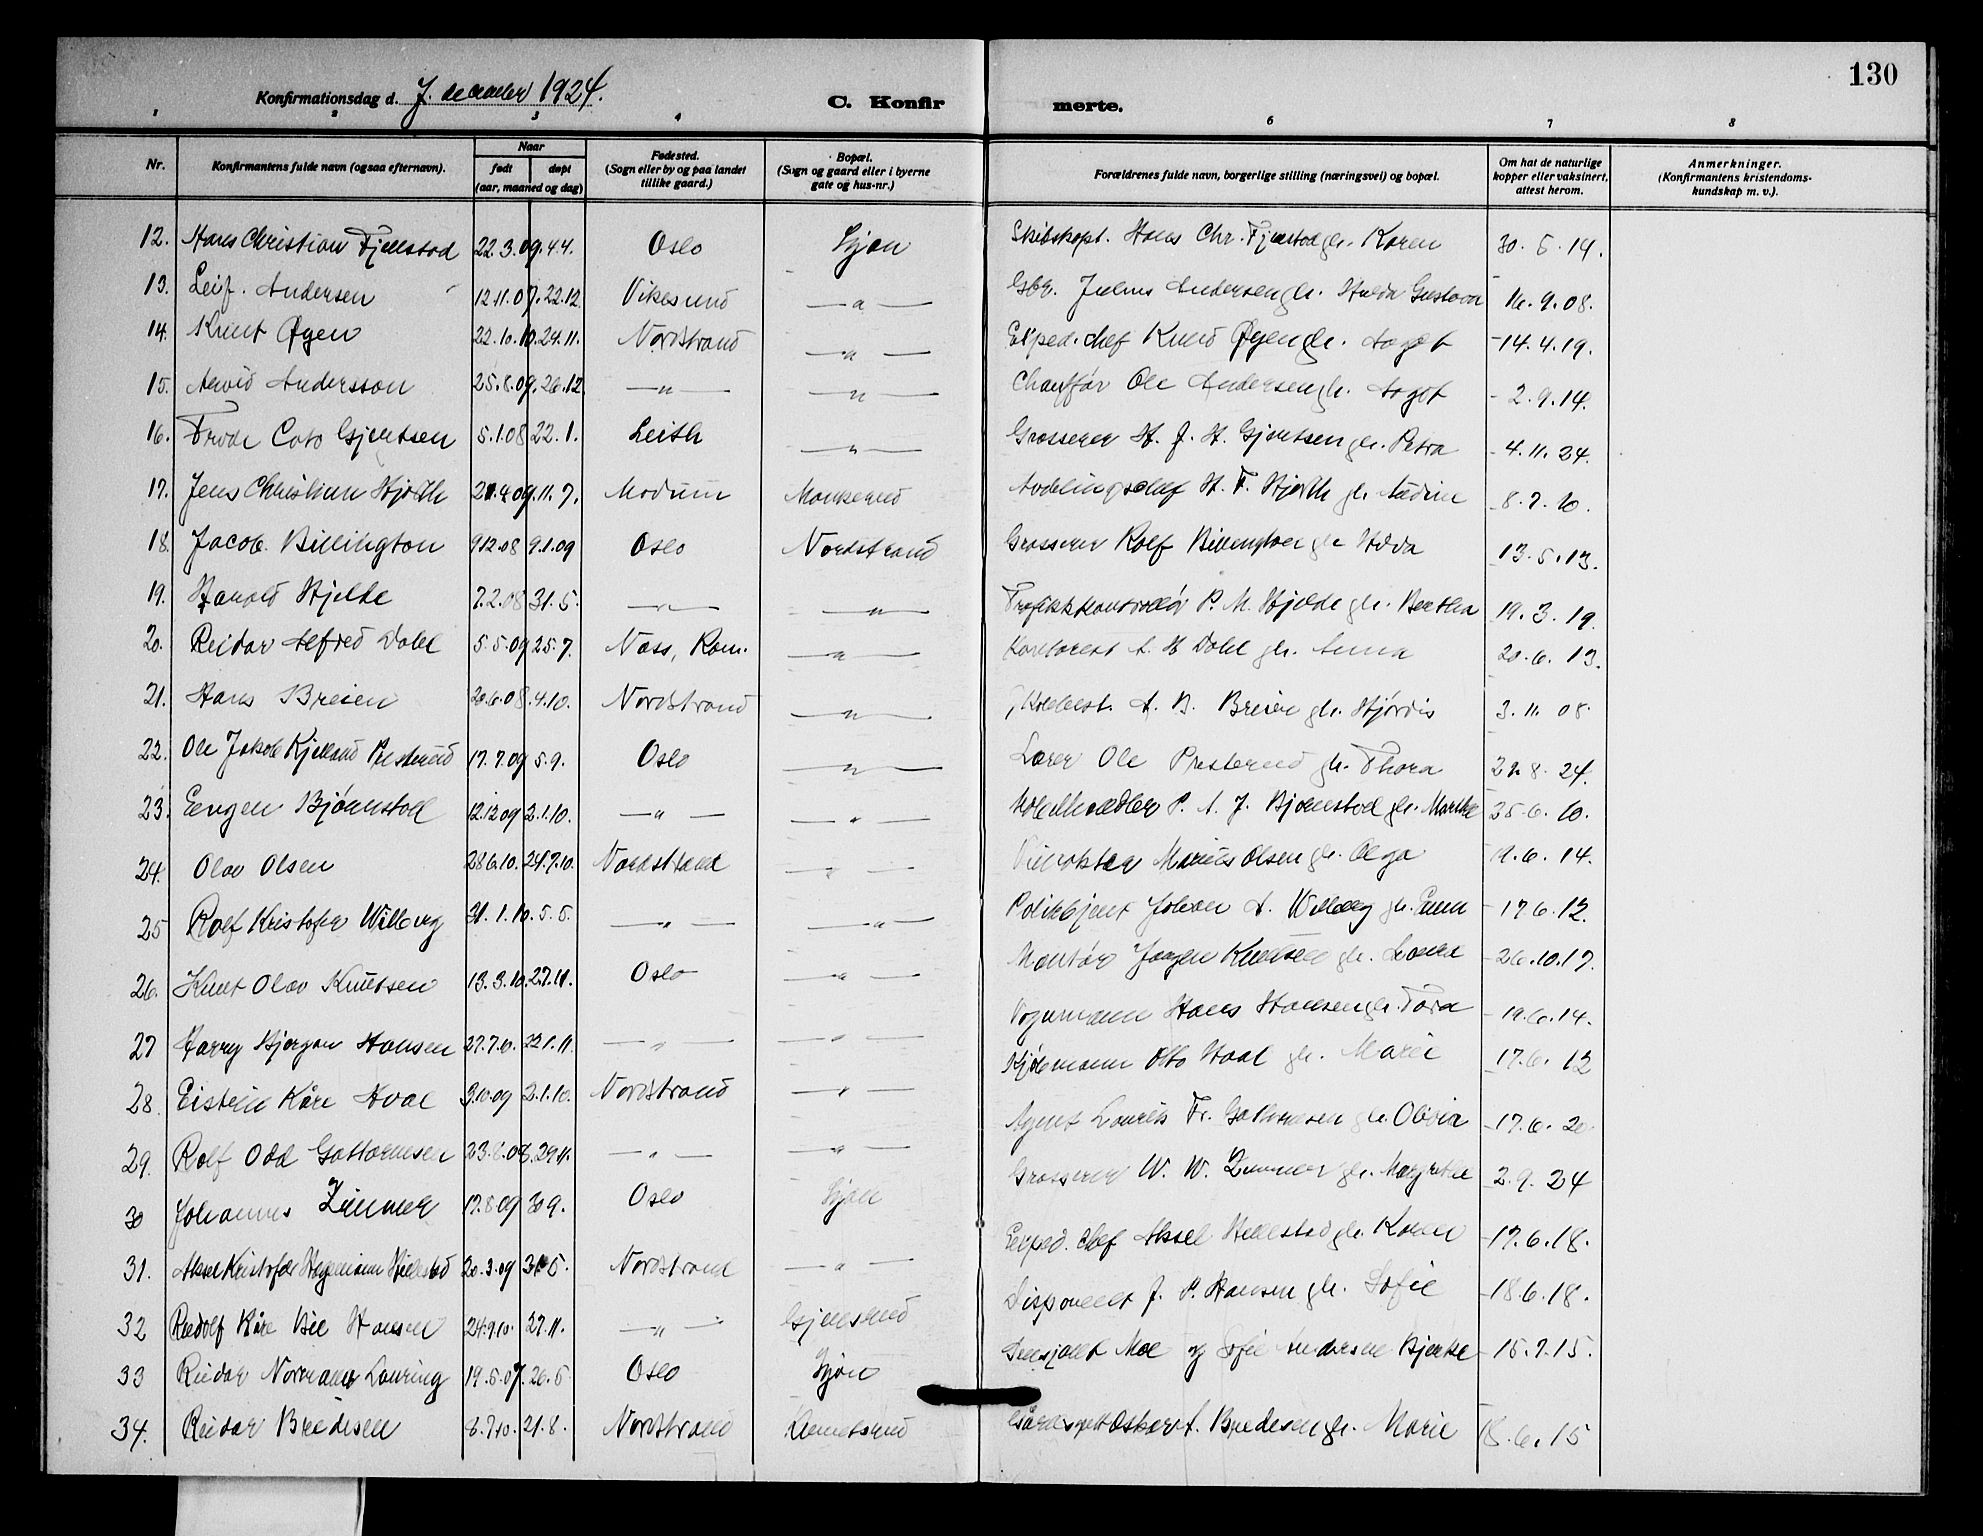 130
Konfirmationsdag d. 7. december 1924.
C. Konfirmerte.
1 2 3 4 6 7 8
Nr. Konfirmantens fulde navn (ogsaa efternavn). Naar født døpt (aar, maaned og dag) Fødested. (Sogn eller by og paa landet tillike gaard.) Bopæl. (Sogn og gaard eller i byerne gate og hus-nr.) Forældrenes fulde navn, borgerlige stilling (næringsvei) og bopæl. Om hat de naturlige kopper eller vaksinert, attest herom. Anmerkninger. (Konfirmantens kristendomskundskap m. v.).
12. Hans Christian Fjellstad 22.3.09. 4.4. Oslo Ljan Skibskapt. Hans Chr. Fjellstad gh. Karen 30.5.14.
13. Leif Andersen 12.11.07. 22.12. Vikesund —"— Gbr. Julius Andersen gh. Hulda Gustava 16.9.08.
14. Knut Øyen 22.10.10. 24.11. Nordstrand —"— Exped. chef Knud Øyen gh. Aagot 14.4.19.
15. Arvid Andersson 25.8.09. 26.12 —"— —"— Chauffør Ole Andersen gh. Aagot 2.9.14.
16. Frode Cato Gjertsen 5.1.08 22.1. Leith —"— Grosserer H. J. H. Gjertsen gh. Petra 4.11.24.
17. Jens Christian Hjorth 21.4.09. 11.7. Modum Munkerud Avdelingschef H. F. Hjorth gh. 8.7.10.
18. Jacob Billington 9.12.08 9.1.09 Oslo Nordstrand Grosserer Rolf Billington gh. 13.5.13.
19. Harald Hjelde 7.2.08 31.5. —"— —"— Trafikkkontrollør P. M. Hjelde gh. Bertha 19.3.19.
20. Reidar Alfred Dahl 5.5.09 25.7. Næss, Rom. —"— Kontorist A. H Dahl gh. Anna 20.6.13.
21. Hans Breien 20.6.08. 4.10. Nordstrand —"— A. B. Breien gh. Hjørdis 3.11.08.
22. Ole Jakob Kjelland Presterud 17.7.09 5.9. Oslo —"— Lærer Ole Presterud gh. Thora 8.24.
23. Eugen Bjørnstad 12.12.09 2.1.10. —"— —"— P. A. J. Bjørnstad gh. Marthe 25.6.10.
24. Olav Olsen 28.6.10. 24.7.10. Nordstrand —"— Marius Olsen gh. Olga 19.6.14.
25 Rolf Kristofer Wilberg 31.1.10. 5.5. —"— —"— Politibtjent Johan A. Wilberg gh. 17.6.12.
26. Knut Olav Knutsen 13.3.10. 27.11. Oslo —"— Montør Jørgen Knutsen gh. 26.10.17.
27 Harry Bjørgan Hansen 27.7.10. 22.1.11. —"— —"— Vognmann Hans Hansen gh. Tora 19.6.14.
28. Eistein Kåre Hval 3.10.09 2.1.10. Nordstrand —"— Kjøbmann Otto Hval gh. Marie 17.6.12
29. Rolf Odd Guttormsen 23.8.08. 29.11. —"— —"— Agent Lauritz Fr. Guttormsen gh. Olivia 17.6.20.
30 Johannes Zimmer 17.8.09 30.9. Oslo Ljan Grosserer W. W. Zimmer gh. Margrethe 2.9.24
31. Aksel Kristofer Hellestad 20.3.09 31.5. Nordstrand —"— Exped. chef Aksel Hellestad gh. Karen 17.6.18.
32 Rudolf Kåre Hansen 24.9.10. 27.11. —"— Gjersrud Disponent J. P. Hansen gh. Sofie 18.6.18.
33 Reidar Normann Lauring 19.5.07. 26.5 Oslo Ljan Moe og Sofie Andersen Bjerke 15.7.15.
34. Reidar Bredesen 8.7.10. 21.8. Nordstrand Oskar A. Bredesen gh. Marie 18.6.15